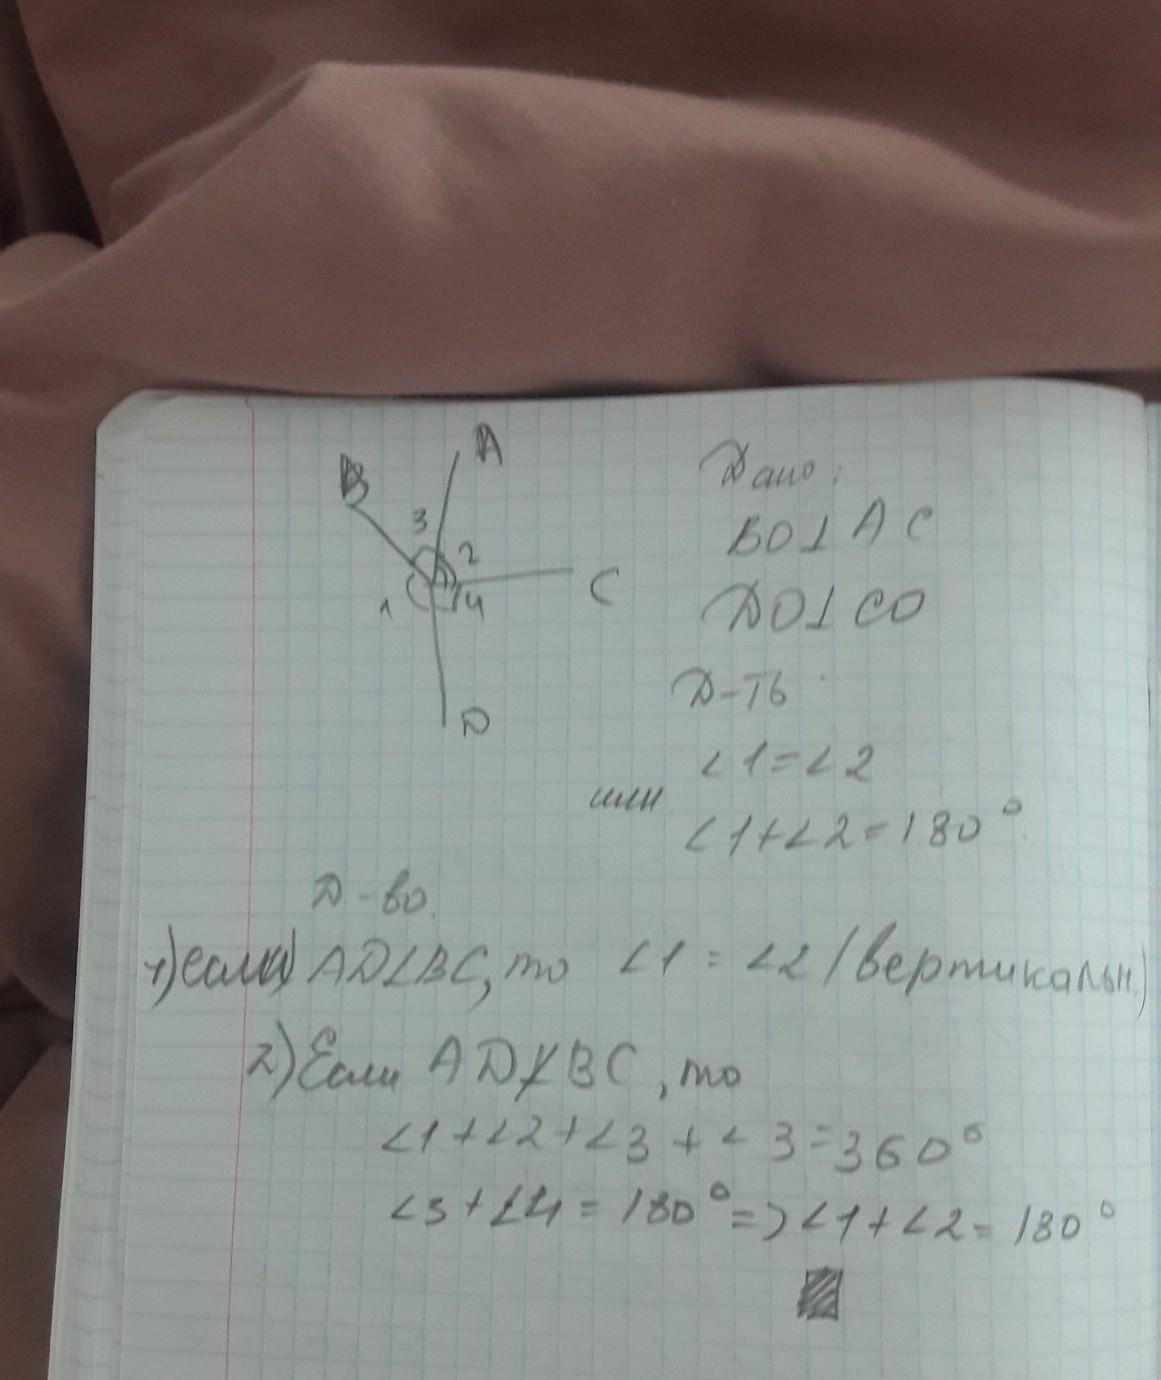 A
B
3
2
C
1
4
D
Дано:
BO⊥AC
DO⊥CO
Д-ть
∠1=∠2
или
∠1+∠2=180°
Д-во.
1) если AD⊥BC, то ∠1=∠2 (вертикальн.)
2) Если AD⊥̸BC, то
∠1+∠2+∠3+∠3=360°
∠3+∠4=180°=>∠1+∠2=180°